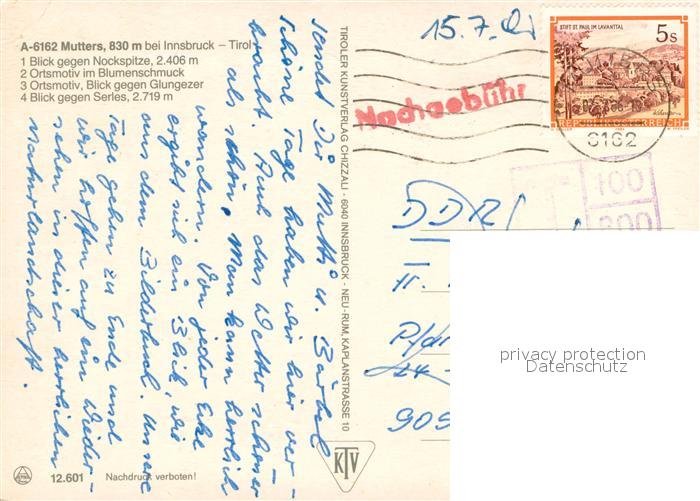 A-6162 Mutters, 830 m bei Innsbruck – Tirol
1 Blick gegen Nockspitze, 2.406 m
2 Ortsmotiv im Blumenschmuck
3 Ortsmotiv, Blick gegen Glungezer
4 Blick gegen Serles, 2.719 m
15.7.
sendet Dir Mutti u. Bärbel
Schöne Tage haben wir hier ver-
bracht. Auch das Wetter schöner
als schön. Man kann herrlich
wandern. Von jeder Ecke
ergibt sich ein Blick, wie
aus dem Bilderbuch. Unsere
Tage gehen zu Ende und
wir hoffen auf ein Wieder-
sehen in dieser herrlichen
Naturlandschaft.
TIROLER KUNSTVERLAG CHIZZALI · 6040 INNSBRUCK - NEU-RUM, KAPLANSTRASSE 10
KTV
12.601
Nachdruck verboten!
STIFT ST. PAUL IM LAVANTTAL
5s
REPUBLIK ÖSTERREICH
6162
Nachgebühr
T
100
DDR
905
privacy protection
Datenschutz